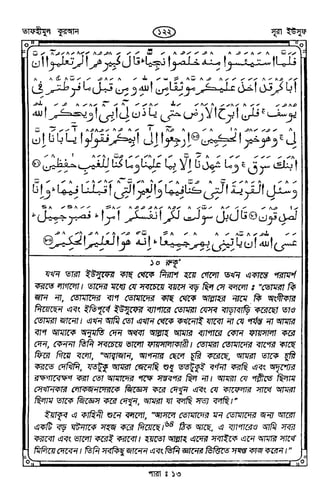 তাফহীমুল কুরআন
১২২
সূরা ইউসুফ
فَلَمَّا اسْتَيْئَسُوا مِنْهُ خَلَصُوا نَجِيًّا ۖ قَالَ كَبِيرُهُمْ أَلَمْ تَعْلَمُوا أَنَّ
أَبَاكُمْ قَدْ أَخَذَ عَلَيْكُمْ مَوْثِقًا مِنَ اللَّهِ وَمِنْ قَبْلُ مَا فَرَّطْتُمْ فِي
يُوسُفَ ۖ فَلَنْ أَبْرَحَ الْأَرْضَ حَتَّىٰ يَأْذَنَ لِي أَبِي أَوْ يَحْكُمَ اللَّهُ
لِي ۖ وَهُوَ خَيْرُ الْحَاكِمِينَ ۝ ارْجِعُوا إِلَىٰ أَبِيكُمْ فَقُولُوا يَا أَبَانَا إِنَّ
ابْنَكَ سَرَقَ ۚ وَمَا شَهِدْنَا إِلَّا بِمَا عَلِمْنَا وَمَا كُنَّا لِلْغَيْبِ حَافِظِينَ ۝
وَسْئَلِ الْقَرْيَةَ الَّتِي كُنَّا فِيهَا وَالْعِيرَ الَّتِي أَقْبَلْنَا فِيهَا ۖ وَإِنَّا
لَصَادِقُونَ ۝ قَالَ بَلْ سَوَّلَتْ لَكُمْ أَنْفُسُكُمْ أَمْرًا ۖ فَصَبْرٌ جَمِيلٌ ۖ
عَسَى اللَّهُ أَنْ يَأْتِيَنِي بِهِمْ جَمِيعًا ۚ إِنَّهُ هُوَ الْعَلِيمُ الْحَكِيمُ ۝
১০ রুকূ'
যখন তারা ইউসুফের কাছ থেকে নিরাশ হয়ে গেলো তখন একান্তে পরামর্শ
করতে লাগলো। তাদের মধ্যে যে সবচেয়ে বয়সে বড় ছিল সে বললো ঃ "তোমরা কি
জান না, তোমাদের বাপ তোমাদের কাছ থেকে আল্লাহর নামে কি অংগীকার
নিয়েছেন এবং ইতিপূর্বে ইউসুফের ব্যাপারে তোমরা যেসব বাড়াবাড়ি করেছো তাও
তোমরা জানো। এখন আমি তো এখান থেকে কখনোই যাবো না যে পর্যন্ত না আমার
বাপ আমাকে অনুমতি দেন অথবা আল্লাহ আমার ব্যাপারে কোন ফায়সালা করে
দেন, কেননা তিনি সবচেয়ে ভালো ফায়সালাকারী। তোমরা তোমাদের বাপের কাছে
ফিরে গিয়ে বলো, "আব্বাজান, আপনার ছেলে চুরি করেছে, আমরা তাকে চুরি
করতে দেখিনি, যতটুকু আমরা জেনেছি শুধু ততটুকুই বর্ণনা করছি এবং অদৃশ্যের
রক্ষণাবেক্ষণ করা তো আমাদের পক্ষে সম্ভবপর ছিল না। আমরা যে পল্লীতে ছিলাম
সেখানকার লোকজনদেরকে জিজ্ঞেস করে দেখুন এবং যে কাফেলার সাথে আমরা
ছিলাম তাকে জিজ্ঞেস করে দেখুন, আমরা যা বলছি সত্য বলছি।"
ইয়াকূব এ কাহিনী শুনে বললো, "আসলে তোমাদের মন তোমাদের জন্য আরো
একটি বড় ঘটনাকে সহজ করে দিয়েছে। ঠিক আছে, এ ব্যাপারেও আমি সবর
করবো এবং ভালো করেই করবো। হয়তো আল্লাহ এদের সবাইকে এনে আমার সাথে
মিলিয়ে দেবেন। তিনি সবকিছু জানেন এবং তিনি জ্ঞানের ভিত্তিতে সমস্ত কাজ করেন।"
পারা ঃ ১৩